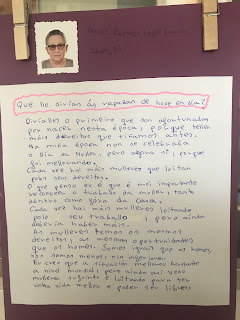 Que lle dirías ás rapazas de hoxe en día?
Diríalles o primeiro que son afortunadas
por nacer nesta época, porque teñen
máis dereitos que tiñamos antes.
Na miña época non se celebraba
o Día da Muller, pero agora si, porque
foi mellorando.
Cada vez hai máis mulleres que loitan
polos seus dereitos.
O que penso eu é que é moi importante
recoñecer o traballo da muller, tanto
dentro como fóra da casa.
Cada vez hai máis mulleres loitando
polo seu traballo, pero aínda
debería haber máis.
As mulleres temos os mesmos
dereitos, as mesmas oportunidades
que os homes. Somos iguais que os homes,
non somos menos, nin inferiores.
Eu creo que a situación mellorou bastante
a nivel mundial, pero aínda así vexo
mulleres sufrindo e loitando para ter
unha vida mellor e poder ser libres.